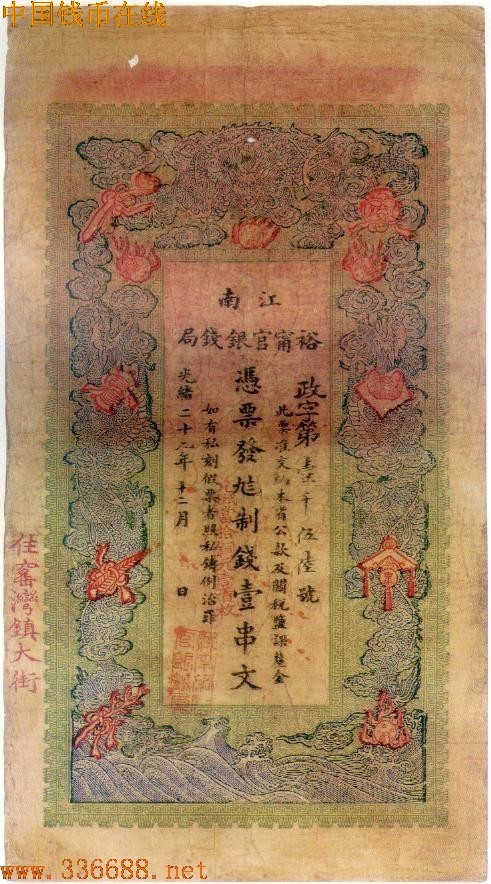 中国钱币在线
江南
裕甯官銀錢局
政字第 千伍陸號
此票准交納本省公款及關稅鹽課釐金
憑票發兌制錢壹串文
如有私刻假票者照私鑄例治罪
光緒二十九年十二月 日
住窰灣鎮大街
www.336688.net